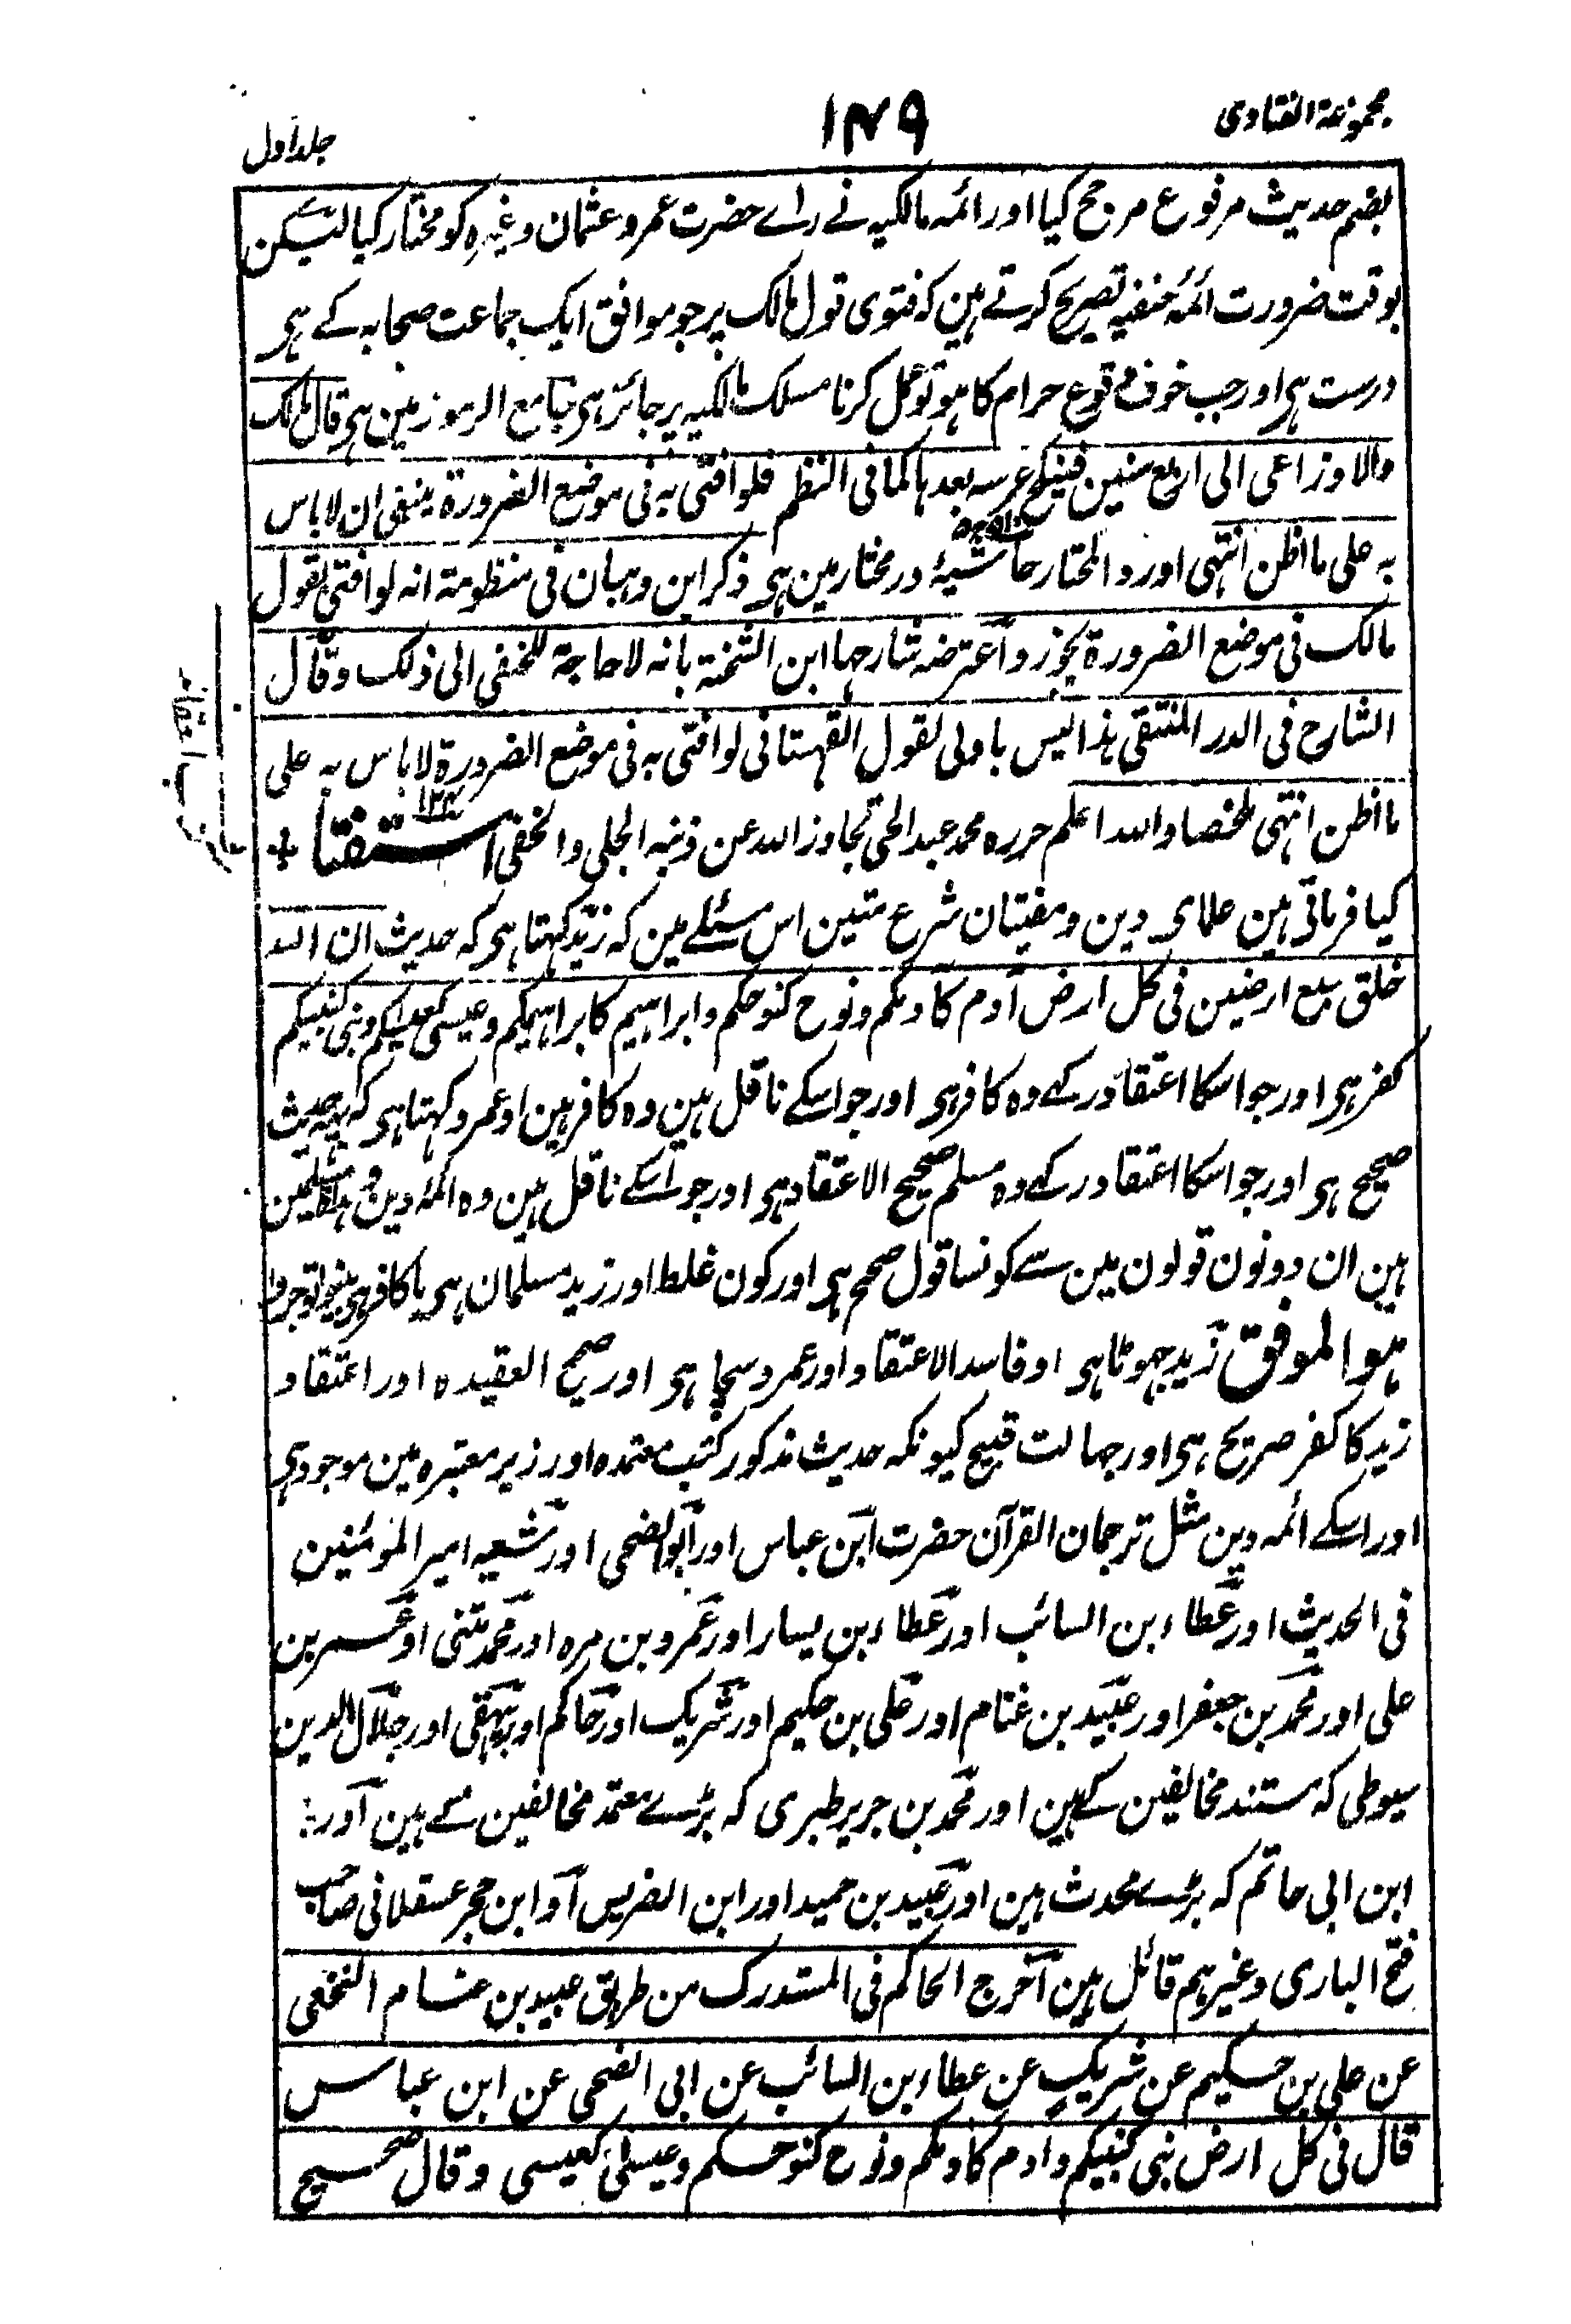 مجموعۃ الفتاوی
۱۴۹
جلد اول
بضم حدیث مرفوع مرجح کیا اور ائمہ مالکیہ نے رائے حضرت عمر وعثمان وغیرہ کو مختار کیا لیکن
بوقت ضرورت ائمۂ حنفیہ تصریح کرتے ہین کہ فتوی قول مالک پر جو موافق ایک جماعت صحابہ کے ہی
درست ہی اور جب خوف وقوع حرام کا ہو تو عمل کرنا مسلک مالکیہ پر جائز ہی جامع الرموز مین ہی قال مالک
والاوزاعی الی اربع سنین فینکح عرسہ بعدہا کما فی النظم فلو افتی بہ فی موضع الضرورۃ ینبغی ان لا باس
بہ علی ما اظن انتہی اور رد المحتار حاشیۂ در مختار مین ہی ذکر ابن وہبان فی منظومتہ انہ لو افتی بقول
مالک فی موضع الضرورۃ یجوز واعترضہ شارحہا ابن الشحنۃ بانہ لا حاجۃ للحنفی الی ذلک وقال
الشارح فی الدر المنتقی ہذا لیس باولی لقول القہستانی لو افتی بہ فی موضع الضرورۃ لا باس بہ علی
ما اظن انتہی ملخصا واللہ اعلم حررہ محمد عبد الحی تجاوز اللہ عن ذنبہ الجلی والخفی استفتا
کیا فرماتی ہین علمای دین ومفتیان شرع متین اس مسئلے مین کہ زید کہتا ہی کہ حدیث ان اللہ
خلق سبع ارضین فی کل ارض آدم کآدمکم ونوح کنوحکم وابراہیم کابراہیمکم وعیسی کعیسیکم ونبی کنبیکم
کفر ہی اور جو اسکا اعتقاد رکہے وہ کافر ہی اور جو اسکے ناقل ہین وہ کافر ہین اور عمرو کہتا ہی کہ یہ حدیث
صحیح ہی اور جو اسکا اعتقاد رکہے وہ مسلم صحیح الاعتقاد ہی اور جو اسکے ناقل ہین وہ ائمۂ دین
ہین ان دونون قولون مین سے کونسا قول صحیح ہی اور کون غلط اور زید مسلمان ہی یا کافر ہی بینوا توجروا
ہو الموفق زید جہوٹا ہی اور فاسد الاعتقاد اور عمرو سچا ہی اور صحیح العقیدہ اور اعتقاد
زید کا کفر صریح ہی اور جہالت قبیح کیونکہ حدیث مذکور کتب معتمدہ اور زبر معتبرہ مین موجود ہی
اور اسکے ائمہ دین مثل ترجمان القرآن حضرت ابن عباس اور ابو الضحی اور شعبہ امیر المؤمنین
فی الحدیث اور عطاء بن السائب اور عطاء بن یسار اور عمرو بن مرہ اور محمد مثنی اور عمر بن
علی اور محمد بن جعفر اور عبید بن غنام اور علی بن حکیم اور شریک اور حاکم اور بیہقی اور جلال الدین
سیوطی کہ مستند مخالفین کے ہین اور محمد بن جریر طبری کہ بڑے معتمد مخالفین کے ہین اور
ابن ابی حاتم کہ بڑے محدث ہین اور عبید بن حمید اور ابن الضریس اور ابن حجر عسقلانی صاحب
فتح الباری وغیرہم قائل ہین اخرج الحاکم فی المستدرک من طریق عبید بن غنام النخعی
عن علی بن حکیم عن شریک عن عطاء بن السائب عن ابی الضحی عن ابن عباس
قال فی کل ارض نبی کنبیکم وادم کادمکم ونوح کنوحکم وعیسی کعیسی وقال صحیح